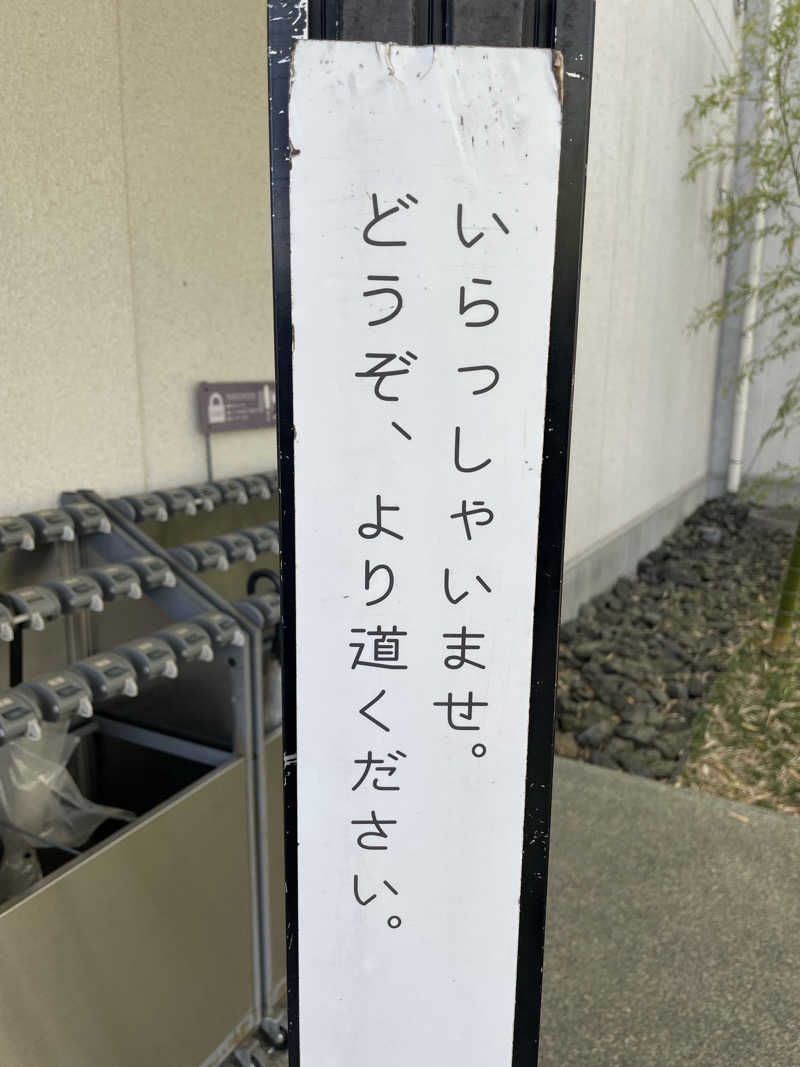 いらっしゃいませ。
どうぞ、より道ください。